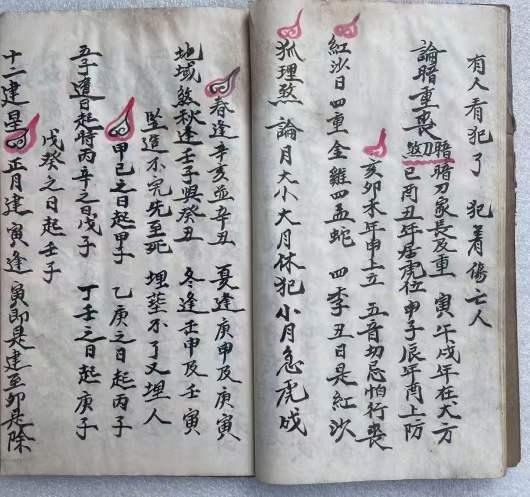 有人看犯了 犯着傷亡人
論暗重喪 暗刀煞 暗刀家長及重 寅午戌年在大方
巳酉丑年居虎位 申子辰年酉上防
亥卯未年申上立 五音切忌怕行喪
紅沙日 四重金雞四孟蛇 四季丑日是紅沙
狐理煞 論月大小大月休犯小月急虎成
春逢辛亥並辛丑 夏逢庚申及庚寅
地域煞 秋逢壬子與癸丑 冬逢壬申及壬寅
墜造不完先至死 埋塟不了又埋人
甲己之日起甲子 乙庚之日起丙子
五子遁日起時 丙辛之日戊子 丁壬之日起庚子
戊癸之日起壬子
十二建星 正月建寅逢寅即是建至卯是除